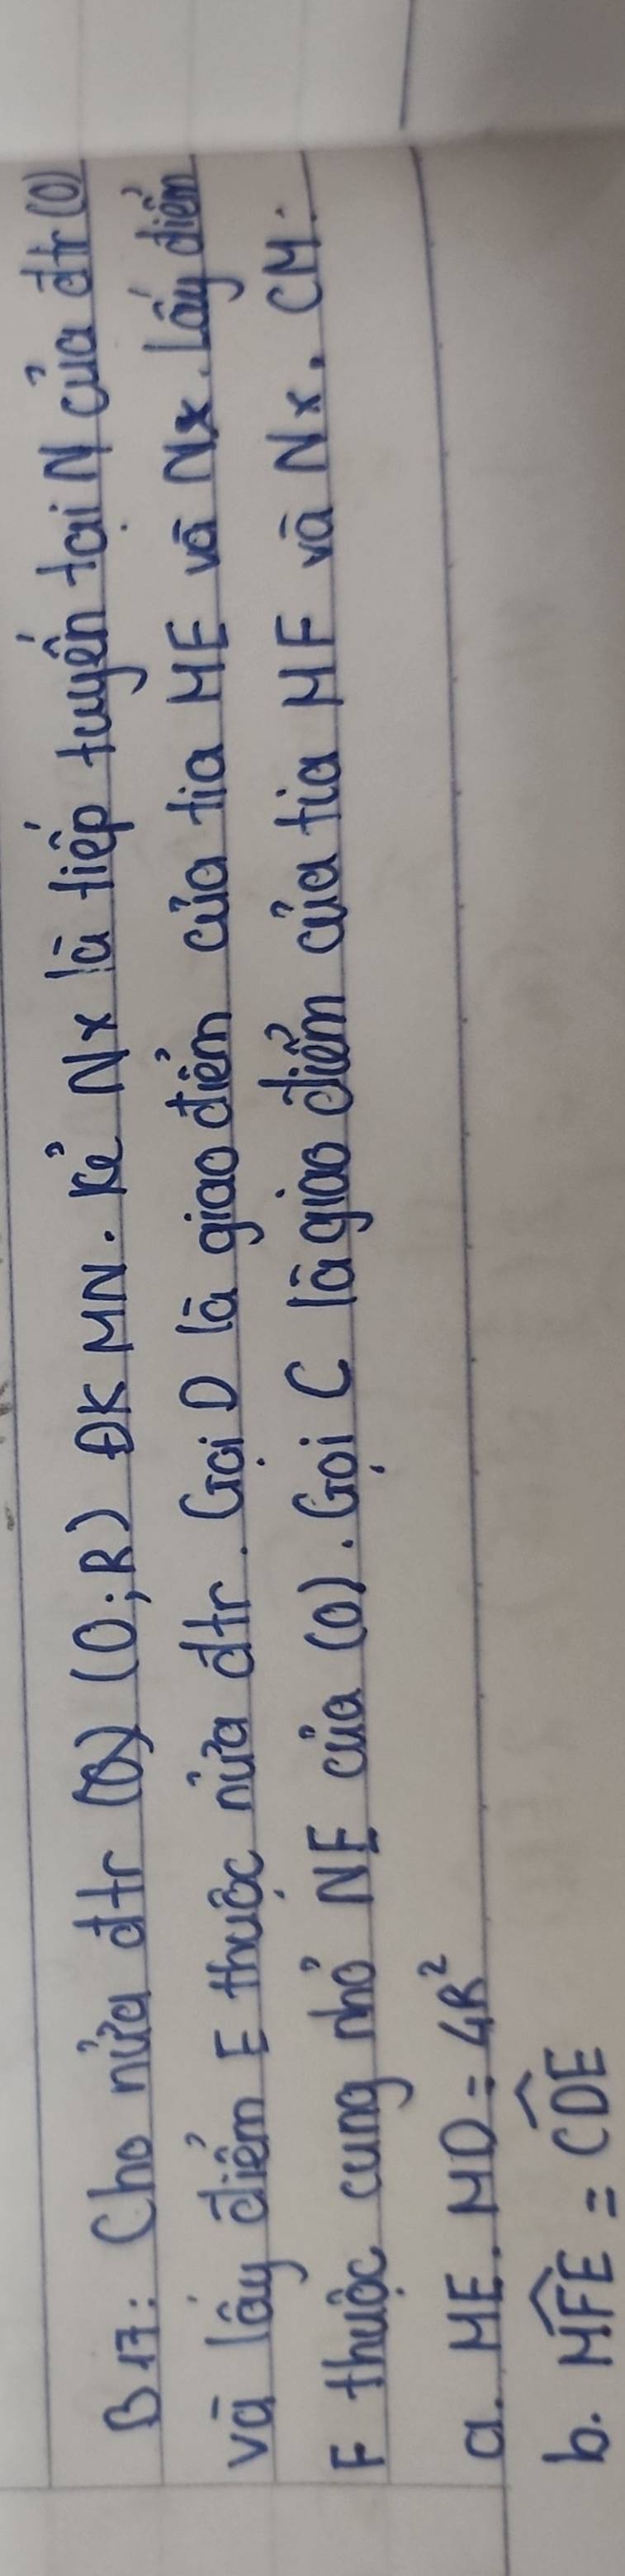 B17: Cho nửa đtr (O;R) ĐK MN. Kẻ Nx là tiếp tuyến tại N của đtr (O)
và lấy điểm E thuộc nửa đtr. Gọi D là giao điểm của tia ME và Nx. Lấy điểm
F thuộc cung nhỏ NE của (O). Gọi C là giao điểm của tia MF và Nx. CM:
a. ME. MD = 4R²
b. \widehat{MFE} = \widehat{CDE}